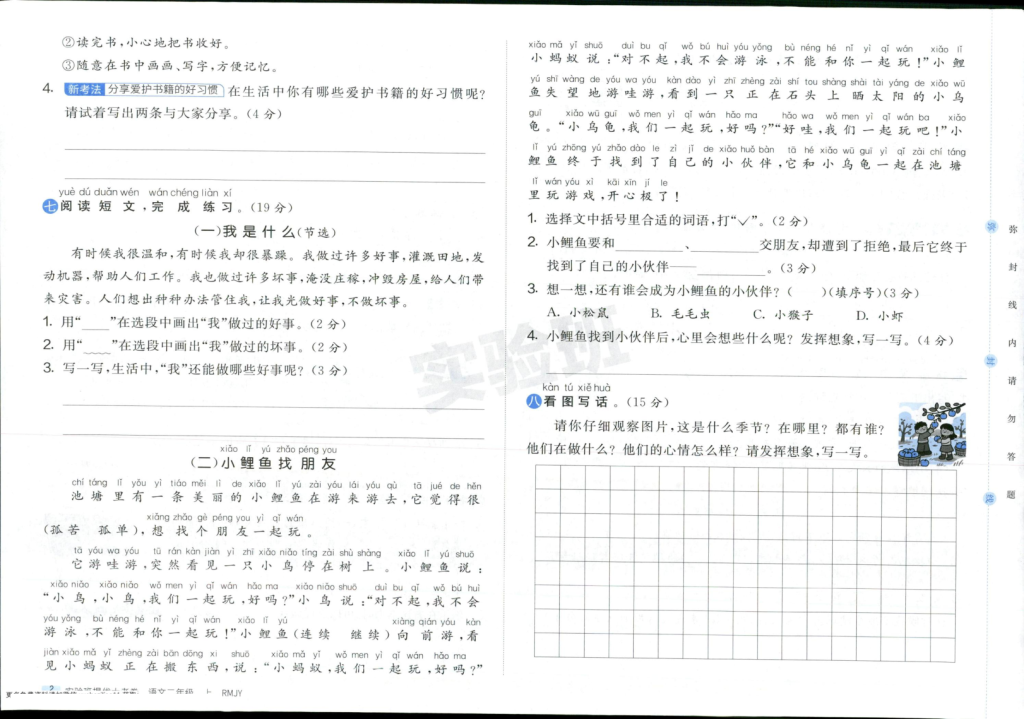 ②读完书,小心地把书收好。
③随意在书中画画、写字,方便记忆。
4. 新考法 分享爱护书籍的好习惯 在生活中你有哪些爱护书籍的好习惯呢?
请试着写出两条与大家分享。(4分)
yuè dú duǎn wén wán chéng liàn xí
七 阅读短文,完成练习。(19分)
(一)我是什么(节选)
有时候我很温和,有时候我却很暴躁。我做过许多好事,灌溉田地,发
动机器,帮助人们工作。我也做过许多坏事,淹没庄稼,冲毁房屋,给人们带
来灾害。人们想出种种办法管住我,让我光做好事,不做坏事。
1. 用“____”在选段中画出“我”做过的好事。(2分)
2. 用“﹏﹏”在选段中画出“我”做过的坏事。(2分)
3. 写一写,生活中,“我”还能做哪些好事呢?(3分)
xiǎo lǐ yú zhǎo péng you
(二)小鲤鱼找朋友
chí táng lǐ yǒu yì tiáo měi lì de xiǎo lǐ yú zài yóu lái yóu qù tā jué de hěn
池塘里有一条美丽的小鲤鱼在游来游去,它觉得很
xiǎng zhǎo gè péng you yì qǐ wán
(孤苦 孤单),想找个朋友一起玩。
tā yóu wa yóu tū rán kàn jiàn yì zhī xiǎo niǎo tíng zài shù shàng xiǎo lǐ yú shuō
它游哇游,突然看见一只小鸟停在树上。小鲤鱼说:
xiǎo niǎo xiǎo niǎo wǒ men yì qǐ wán hǎo ma xiǎo niǎo shuō duì bu qǐ wǒ bú huì
“小鸟,小鸟,我们一起玩,好吗?”小鸟说:“对不起,我不会
yóu yǒng bù néng hé nǐ yì qǐ wán xiǎo lǐ yú xiàng qián yóu kàn
游泳,不能和你一起玩!”小鲤鱼(连续 继续)向前游,看
jiàn xiǎo mǎ yǐ zhèng zài bān dōng xi shuō xiǎo mǎ yǐ wǒ men yì qǐ wán hǎo ma
见小蚂蚁正在搬东西,说:“小蚂蚁,我们一起玩,好吗?”
2 语文二年级 上 RMJY
xiǎo mǎ yǐ shuō duì bu qǐ wǒ bú huì yóu yǒng bù néng hé nǐ yì qǐ wán xiǎo lǐ
小蚂蚁说:“对不起,我不会游泳,不能和你一起玩!”小鲤
yú shī wàng de yóu wa yóu kàn dào yì zhī zhèng zài shí tou shàng shài tài yáng de xiǎo wū
鱼失望地游哇游,看到一只正在石头上晒太阳的小乌
guī xiǎo wū guī wǒ men yì qǐ wán hǎo ma hǎo wa wǒ men yì qǐ wán ba xiǎo
龟。“小乌龟,我们一起玩,好吗?”“好哇,我们一起玩吧!”小
lǐ yú zhōng yú zhǎo dào le zì jǐ de xiǎo huǒ bàn tā hé xiǎo wū guī yì qǐ zài chí táng
鲤鱼终于找到了自己的小伙伴,它和小乌龟一起在池塘
lǐ wán yóu xì kāi xīn jí le
里玩游戏,开心极了!
1. 选择文中括号里合适的词语,打“✓”。(2分)
2. 小鲤鱼要和________、________交朋友,却遭到了拒绝,最后它终于
找到了自己的小伙伴——________。(3分)
3. 想一想,还有谁会成为小鲤鱼的小伙伴?( )(填序号)(3分)
A. 小松鼠 B. 毛毛虫 C. 小猴子 D. 小虾
4. 小鲤鱼找到小伙伴后,心里会想些什么呢?发挥想象,写一写。(4分)
kàn tú xiě huà
八 看图写话。(15分)
请你仔细观察图片,这是什么季节?在哪里?都有谁?
他们在做什么?他们的心情怎么样?请发挥想象,写一写。
实验班
弥封线内请勿答题